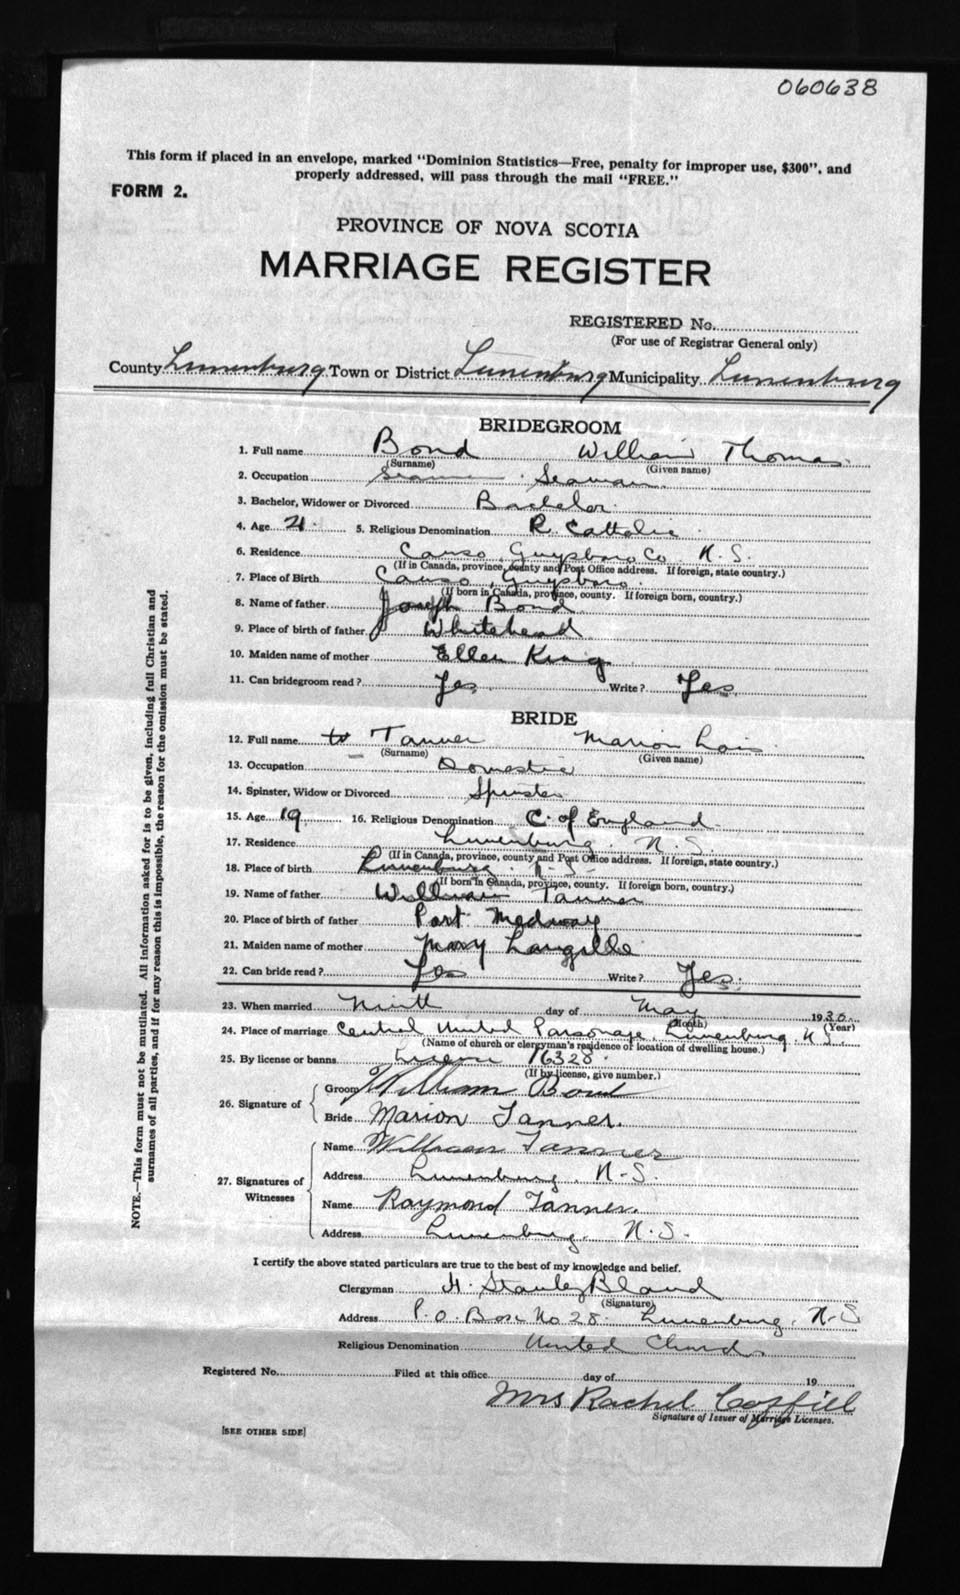 060638
This form if placed in an envelope, marked "Dominion Statistics—Free, penalty for improper use, $300", and
properly addressed, will pass through the mail "FREE."
FORM 2.
PROVINCE OF NOVA SCOTIA
MARRIAGE REGISTER
REGISTERED No.
(For use of Registrar General only)
County Lunenburg Town or District Lunenburg Municipality Lunenburg
BRIDEGROOM
1. Full name Bond William Thomas
(Surname) (Given name)
2. Occupation Seaman
3. Bachelor, Widower or Divorced Bachelor
4. Age 21 5. Religious Denomination R. Catholic
6. Residence Canso, Guysboro Co. N.S.
(If in Canada, province, county and Post Office address. If foreign, state country.)
7. Place of Birth Canso, Guysboro.
(If born in Canada, province, county. If foreign born, country.)
8. Name of father Joseph Bond
9. Place of birth of father Whitehead
10. Maiden name of mother Ellen King
11. Can bridegroom read? Yes Write? Yes
BRIDE
12. Full name to Tanner Marion Lois
(Surname) (Given name)
13. Occupation Domestic
14. Spinster, Widow or Divorced Spinster
15. Age 19 16. Religious Denomination C. of England
17. Residence Lunenburg. N.S.
(If in Canada, province, county and Post Office address. If foreign, state country.)
18. Place of birth Lunenburg. N.S.
(If born in Canada, province, county. If foreign born, country.)
19. Name of father William Tanner
20. Place of birth of father Port Medway
21. Maiden name of mother Mary Langille
22. Can bride read? Yes Write? Yes.
23. When married Ninth day of May 1930
(Month) (Year)
24. Place of marriage Central United Parsonage, Lunenburg. N.S.
(Name of church or clergyman's residence or location of dwelling house.)
25. By license or banns License 16328.
(If by license, give number.)
26. Signature of
Groom William Bond
Bride Marion Tanner.
27. Signatures of Witnesses
Name William Tanner
Address Lunenburg, N.S.
Name Raymond Tanner.
Address Lunenburg. N.S.
I certify the above stated particulars are true to the best of my knowledge and belief.
Clergyman H. Stanley Bland
(Signature)
Address P.O. Box No 28. Lunenburg, N.S
Religious Denomination United Church
Registered No. Filed at this office day of 19
Mrs Rachel Coffill
Signature of Issuer of Marriage Licenses.
[SEE OTHER SIDE]
NOTE.—This form must not be mutilated. All information asked for is to be given, including full Christian and
surnames of all parties, and if for any reason this is impossible, the reason for the omission must be stated.